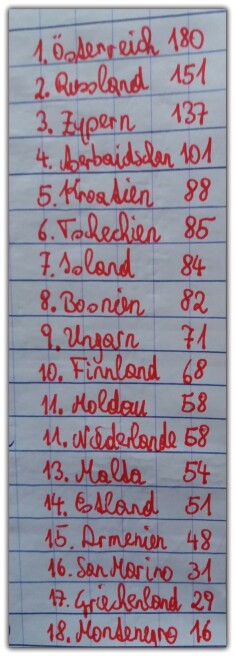 1. Österreich 180
2. Russland 151
3. Zypern 137
4. Aserbaidschan 101
5. Kroatien 88
6. Tschechien 85
7. Island 84
8. Bosnien 82
9. Ungarn 71
10. Finnland 68
11. Moldau 58
11. Niederlande 58
13. Malta 54
14. Estland 51
15. Armenien 48
16. San Marino 31
17. Griechenland 29
18. Montenegro 16